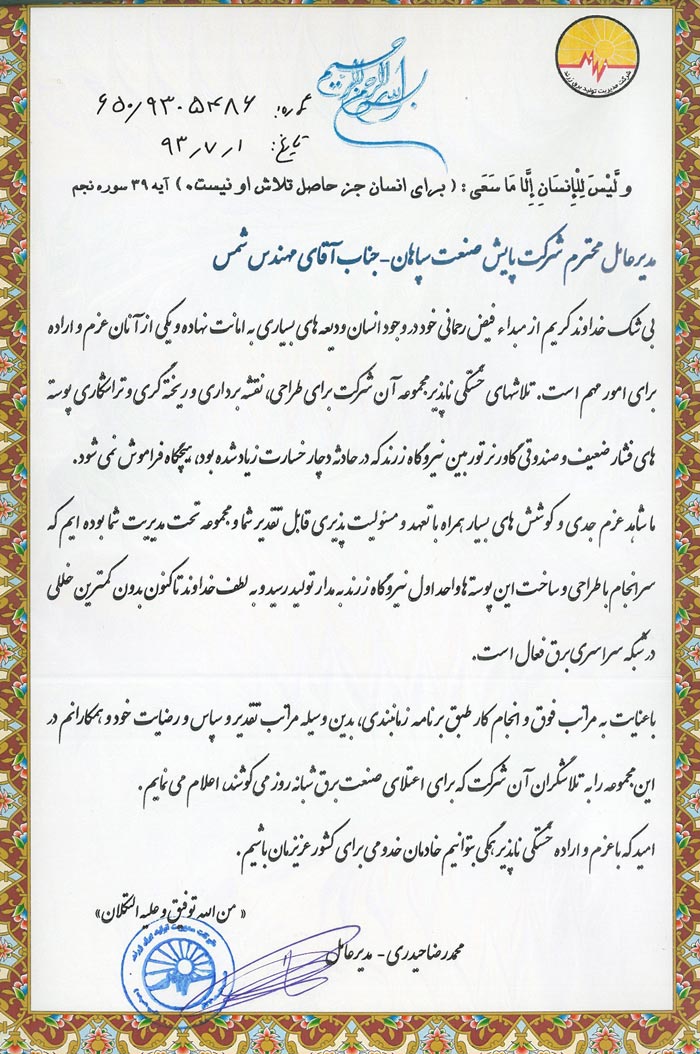 بسم الله الرحمن الرحیم
شرکت مدیریت تولید برق زرند
شماره: ۶۵۰/۹۳۰۵۴۸۶
تاریخ: ۹۳/۷/۱
وَلَیْسَ لِلْإِنسَانِ إِلَّا مَا سَعَی : ( برای انسان جز حاصل تلاش او نیست. ) آیه ۳۹ سوره نجم
مدیرعامل محترم شرکت پایش صنعت سپاهان - جناب آقای مهندس شمس
بی شک خداوند کریم از مبداء فیض رحمانی خود در وجود انسان ودیعه های بسیاری به امانت نهاده و یکی از آنان عزم و اراده
برای امور مهم است. تلاشهای خستگی ناپذیر مجموعه آن شرکت برای طراحی، نقشه برداری و ریخته گری و تراشکاری پوسته
های فشار ضعیف و صندوقی گاورنر توربین نیروگاه زرند که در حادثه دچار خسارت زیاد شده بود، هیچگاه فراموش نمی شود.
ما شاهد عزم جدی و کوشش های بسیار همراه با تعهد و مسئولیت پذیری قابل تقدیر شما و مجموعه تحت مدیریت شما بوده ایم که
سرانجام با طراحی و ساخت این پوسته ها واحد اول نیروگاه زرند به مدار تولید رسید و به لطف خداوند تاکنون بدون کمترین خللی
در شبکه سراسری برق فعال است.
با عنایت به مراتب فوق و انجام کار طبق برنامه زمانبندی، بدین وسیله مراتب تقدیر و سپاس و رضایت خود و همکارانم در
این مجموعه را به تلاشگران آن شرکت که برای اعتلای صنعت برق شبانه روز می کوشند، اعلام می نمایم.
امید که با عزم و اراده خستگی ناپذیر همگی بتوانیم خادمان خدومی برای کشور عزیزمان باشیم.
« من الله توفیق و علیه التکلان»
محمدرضا حیدری - مدیرعامل
شرکت مدیریت تولید برق زرند